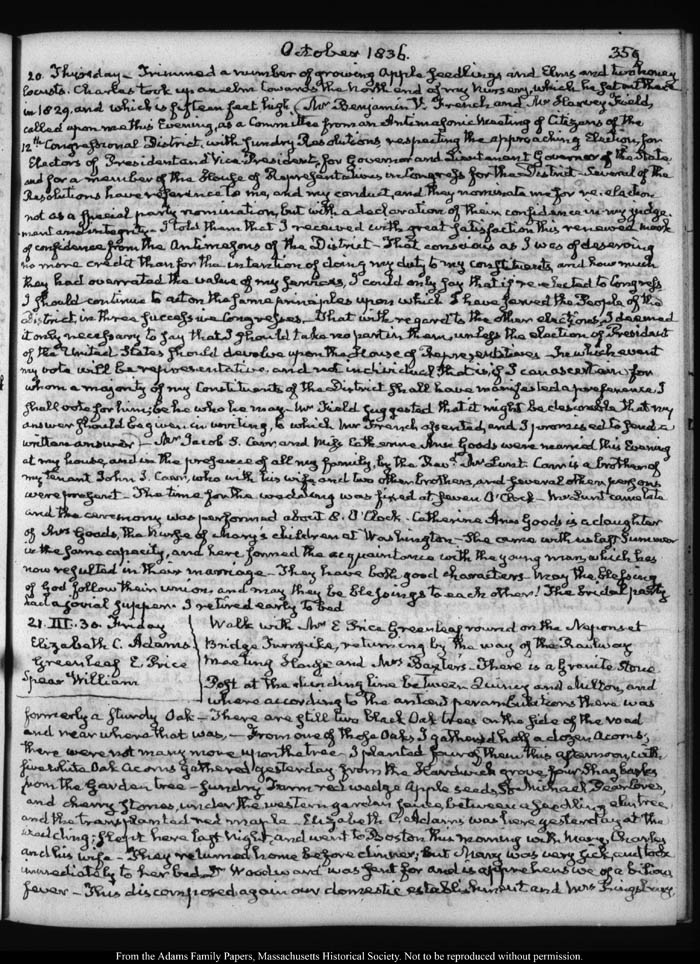 October 1836.
359
20. Thursday – Trimmed a number of growing Apple seedlings and Elms and two honey
locusts. Charles took up an elm towards the North end of my Nursery, which he set out there
in 1829, and which is fifteen feet high. Mr Benjamin V. French, and Mr Harvey Field,
called upon me this Evening, as a Committee from an Antimasonic Meeting of Citizens of the
12th Congressional District, with sundry Resolutions respecting the approaching Election, for
Electors of President and Vice-President, for Governor and Lieutenant Governor of the State
and for a member of the House of Representatives in Congress for the District – Several of the
Resolutions have reference to me, and my conduct, and they nominate me for re-election
not as a special party nomination, but with a declaration of their confidence in my judge-
ment and integrity – I told them that I received with great satisfaction this renewed mark
of confidence from the Antimasons of the District – That conscious as I was of deserving
no more credit than for the intention of doing my duty to my constituents and how much
they had overrated the value of my services, I could only say that if re-elected to Congress
I should continue to act on the same principles upon which I have served the People of the
District, in three successive Congresses. That with regard to the other elections, I deemed
it only necessary to say that I should take no part in them, unless the election of President
of the United States should devolve upon the House of Representatives – In which event
my vote will be representative, and not individual that is, if I can ascertain for
whom a majority of my Constituents of the District shall have manifested a preference, I
shall vote for him; be he who he may – Mr Field suggested that it might be desirable that my
answer should be given in writing, to which Mr French assented, and I promised to send a
written answer – Mr Jacob S. Carr, and Miss Catherine Ann Goods were married this Evening
at my house, and in the presence of all my family, by the Revd. Mr Lunt. Carr is a brother of
my tenant John J. Carr, who with his wife and two other brothers, and several other persons
were present – The time for the wedding was fixed at seven O'Clock – Mr Lunt came late
and the ceremony was performed about 8. O'Clock – Catherine Ann Goods is a daughter
of Mrs Goods, the Nurse of Mary's children at Washington – She came with us last Summer
in the same capacity, and here formed the acquaintance with the young man, which has
now resulted in their marriage – They have both good characters – May the blessing
of God follow their union and may they be blessings to each other! The bridal party
had a jovial supper. I retired early to bed
21. III:30. Friday
Elizabeth C. Adams
Greenleaf E. Price
Spear William
Walk with Mr E Price Greenleaf round on the Neponset
Bridge Turnpike, returning by the way of the Railway
Meeting House and Mrs Baxters – There is a Granite Stone
Post at the dividing line between Quincy and Milton, and
where according to the antient perambulations there was
formerly a sturdy Oak – There are still two black Oak trees on the side of the road
and near where that was, – From one of those Oaks I gathered half a dozen Acorns;
there were not many more upon the tree – I planted four of them this afternoon, with
five white Oak Acorns gathered yesterday from the Hardwick grove, four Shagbarks
from the Garden tree – sundry Farm red wedge Apple seeds, St Michael Pear cores,
and cherry stones, under the western garden fence, between a seedling elm tree
and the transplanted red maple – Elizabeth C. Adams was here yesterday at the
wedding; slept here last Night, and went to Boston this morning with Mary, Charles
and his wife – They returned home before dinner; but Mary was very sick, and took
immediately to her bed – Dr Woodward was sent for and is apprehensive of a bilious
fever – This discomposed again our domestic establishment and Mrs Kingsbury
From the Adams Family Papers, Massachusetts Historical Society. Not to be reproduced without permission.